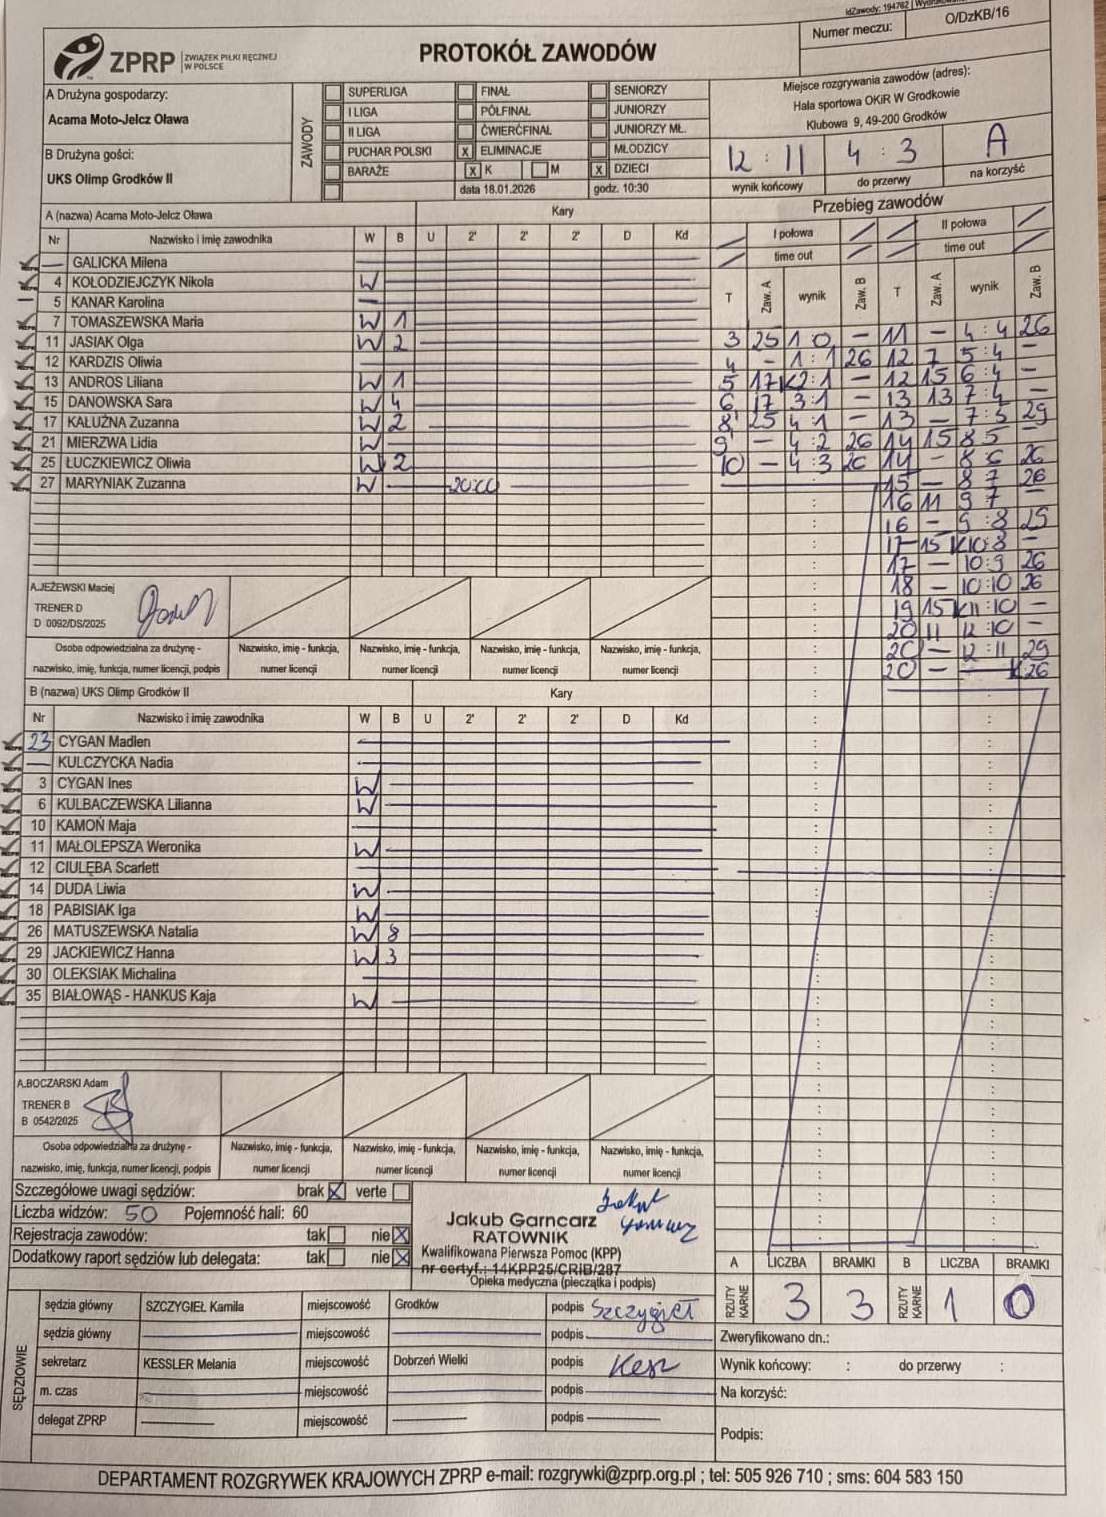 IdZawody: 194762
Numer meczu: O/DzKB/16
ZPRP ZWIĄZEK PIŁKI RĘCZNEJ W POLSCE
PROTOKÓŁ ZAWODÓW
A Drużyna gospodarzy:
Acama Moto-Jelcz Oława
B Drużyna gości:
UKS Olimp Grodków II
ZAWODY
SUPERLIGA FINAŁ SENIORZY
I LIGA PÓŁFINAŁ JUNIORZY
II LIGA ĆWIERĆFINAŁ JUNIORZY MŁ.
PUCHAR POLSKI X ELIMINACJE MŁODZICY
BARAŻE X K M X DZIECI
data 18.01.2026 godz. 10:30
Miejsce rozgrywania zawodów (adres):
Hala sportowa OKiR W Grodkowie
Klubowa 9, 49-200 Grodków
12 : 11 4 : 3 A
wynik końcowy do przerwy na korzyść
A (nazwa) Acama Moto-Jelcz Oława Kary
Nr Nazwisko i imię zawodnika W B U 2' 2' 2' D Kd
— GALICKA Milena
4 KOŁODZIEJCZYK Nikola W
5 KANAR Karolina —
7 TOMASZEWSKA Maria W 1
11 JASIAK Olga W 2
12 KARDZIS Oliwia
13 ANDROS Liliana W 1
15 DANOWSKA Sara W 4
17 KAŁUŻNA Zuzanna W 2
21 MIERZWA Lidia W
25 ŁUCZKIEWICZ Oliwia W 2
27 MARYNIAK Zuzanna W 20:00
A.JEŻEWSKI Maciej
TRENER D
D 0092/DS/2025
Osoba odpowiedzialna za drużynę - Nazwisko, imię - funkcja, Nazwisko, imię - funkcja, Nazwisko, imię - funkcja, Nazwisko, imię - funkcja,
nazwisko, imię, funkcja, numer licencji, podpis numer licencji numer licencji numer licencji numer licencji
Przebieg zawodów
I połowa II połowa
time out time out
T Zaw. A wynik Zaw. B T Zaw. A wynik Zaw. B
3 25 1 0 — 11 — 4 : 4 26
4 - 1 : 1 26 12 7 5 : 4 —
5 17K 2 : 1 — 12 15 6 : 4 —
6 17 3 : 1 — 13 13 7 : 4 —
8' 25 4 1 — 13 — 7 : 5 29
9' — 4 : 2 26 14 15 8 5 —
10 — 4 : 3 26 14 — 8 6 26
15 — 8 7 26
16 11 9 7 —
16 — 9 : 8 29
17 15K 10 : 8 —
17 — 10 : 9 26
18 — 10 : 10 26
19 15K 11 : 10 —
20 11 12 : 10 —
20 — 12 : 11 29
20 — — K26
B (nazwa) UKS Olimp Grodków II Kary
Nr Nazwisko i imię zawodnika W B U 2' 2' 2' D Kd
23 CYGAN Madlen
— KULCZYCKA Nadia
3 CYGAN Ines W
6 KULBACZEWSKA Lilianna W
10 KAMOŃ Maja
11 MAŁOLEPSZA Weronika W
12 CIULĘBA Scarlett
14 DUDA Liwia W
18 PABISIAK Iga W
26 MATUSZEWSKA Natalia W 8
29 JACKIEWICZ Hanna W 3
30 OLEKSIAK Michalina
35 BIAŁOWĄS - HANKUS Kaja W
A.BOCZARSKI Adam
TRENER B
B 0542/2025
Osoba odpowiedzialna za drużynę - Nazwisko, imię - funkcja, Nazwisko, imię - funkcja, Nazwisko, imię - funkcja, Nazwisko, imię - funkcja,
nazwisko, imię, funkcja, numer licencji, podpis numer licencji numer licencji numer licencji numer licencji
Szczegółowe uwagi sędziów: brak X verte
Liczba widzów: 50 Pojemność hali: 60
Rejestracja zawodów: tak nie X
Dodatkowy raport sędziów lub delegata: tak nie X
Jakub Garncarz
RATOWNIK
Kwalifikowana Pierwsza Pomoc (KPP)
nr certyf.: 14KPP25/CRiB/287
Opieka medyczna (pieczątka i podpis)
A LICZBA BRAMKI B LICZBA BRAMKI
RZUTY KARNE 3 3 RZUTY KARNE 1 0
SĘDZIOWIE
sędzia główny SZCZYGIEŁ Kamila miejscowość Grodków podpis Szczygieł
sędzia główny miejscowość podpis
sekretarz KESSLER Melania miejscowość Dobrzeń Wielki podpis
m. czas miejscowość podpis
delegat ZPRP miejscowość podpis
Zweryfikowano dn.:
Wynik końcowy: : do przerwy :
Na korzyść:
Podpis:
DEPARTAMENT ROZGRYWEK KRAJOWYCH ZPRP e-mail: rozgrywki@zprp.org.pl ; tel: 505 926 710 ; sms: 604 583 150